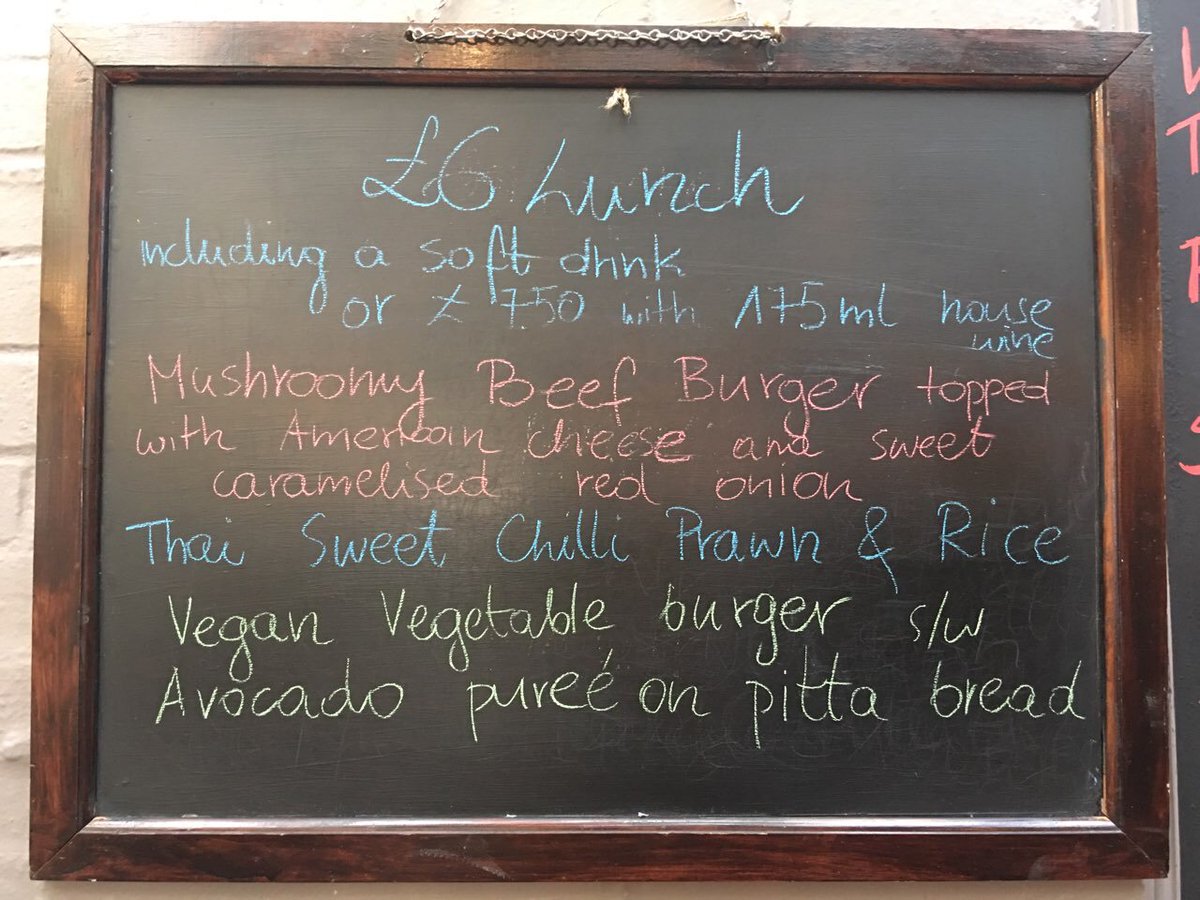 £6 Lunch
including a soft drink
or £ 750 with 175ml house
wine
Mushroomy Beef Burger topped
with American cheese and sweet
caramelised red onion
Thai Sweet Chilli Prawn & Rice
Vegan Vegetable burger s/w
Avocado pureé on pitta bread